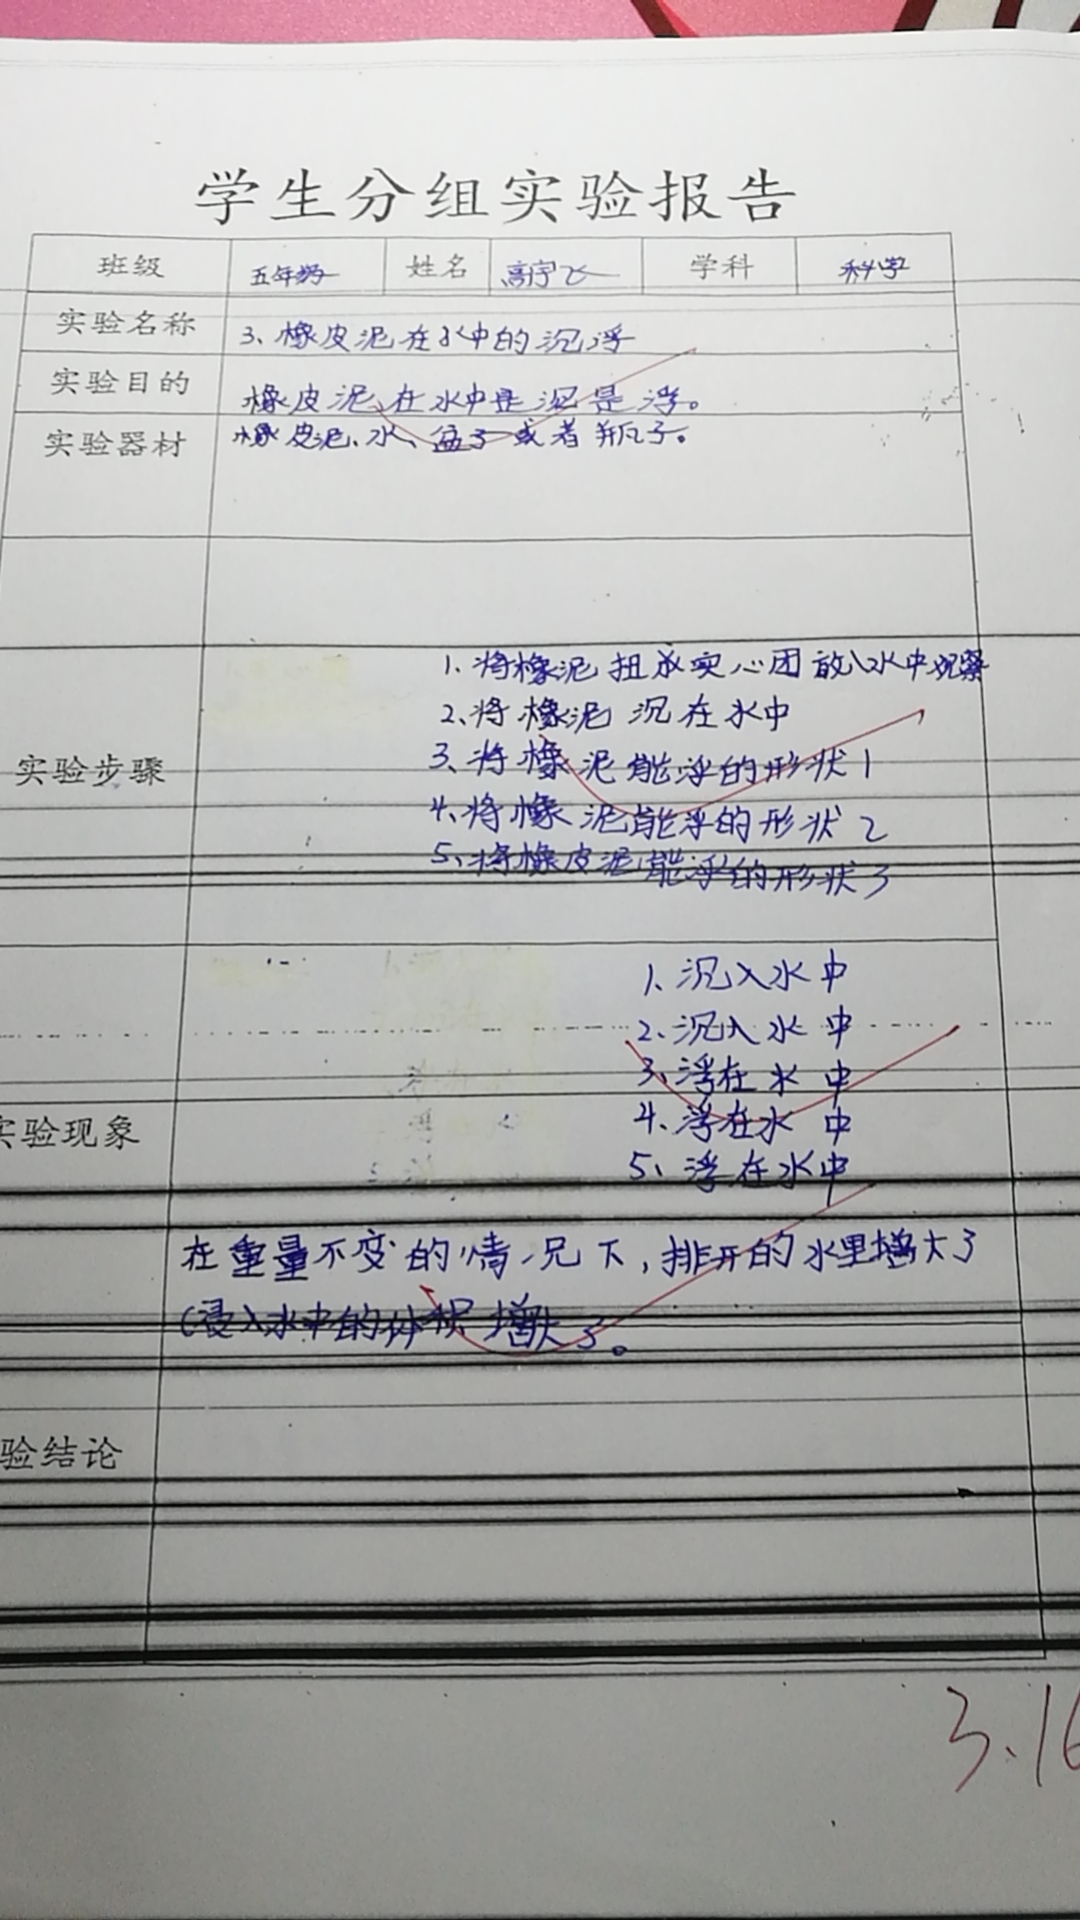 学生分组实验报告
班级 五年级 姓名 高宇飞 学科 科学
实验名称 3、橡皮泥在水中的沉浮
实验目的 橡皮泥在水中是沉是浮。
实验器材 橡皮泥、水、盆子或者瓶子。
1、将橡泥扭成实心团放入水中观察
2、将橡泥沉在水中
实验步骤 3、将橡泥能浮的形状1
4、将橡泥能浮的形状2
5、将橡皮泥能浮的形状3
1、沉入水中
2、沉入水中
3、浮在水中
实验现象 4、浮在水中
5、浮在水中
在重量不变的情况下,排开的水里增大了
(浸入水中的体积增大了。
验结论
3.16